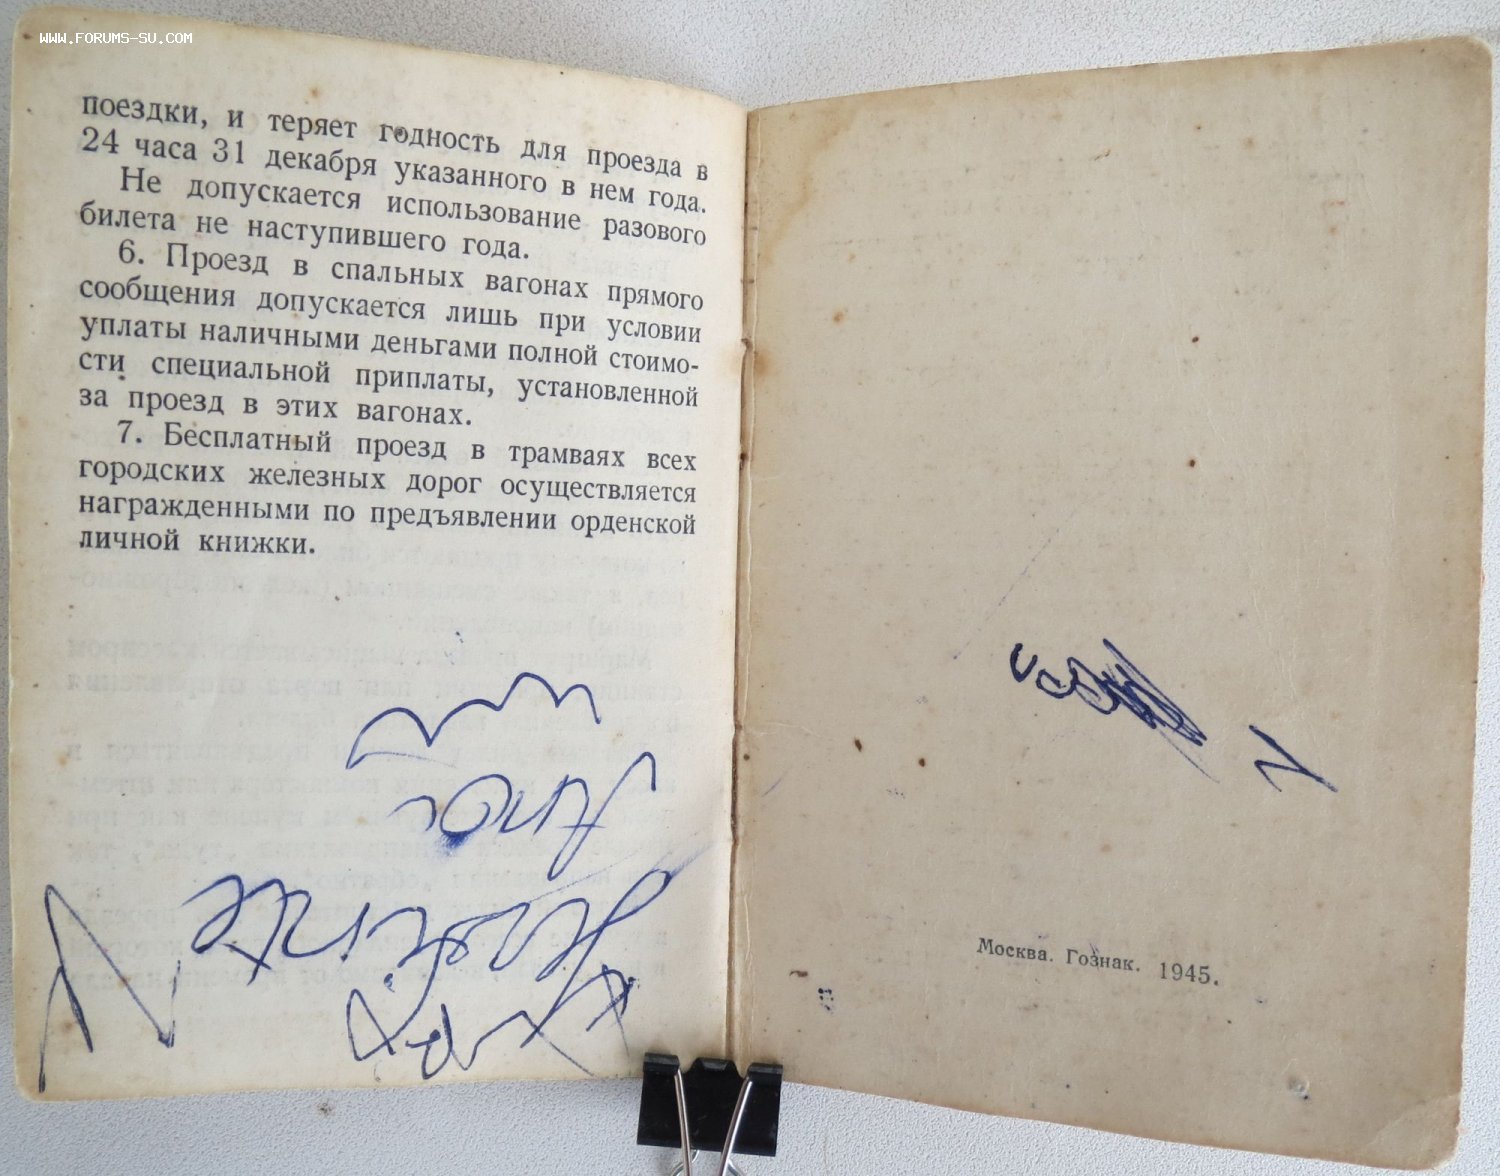 WWW.FORUMS-SU.COM
поездки, и теряет годность для проезда в
24 часа 31 декабря указанного в нем года.
Не допускается использование разового
билета не наступившего года.
6. Проезд в спальных вагонах прямого
сообщения допускается лишь при условии
уплаты наличными деньгами полной стоимо-
сти специальной приплаты, установленной
за проезд в этих вагонах.
7. Бесплатный проезд в трамваях всех
городских железных дорог осуществляется
награжденными по предъявлении орденской
личной книжки.
Москва. Гознак. 1945.